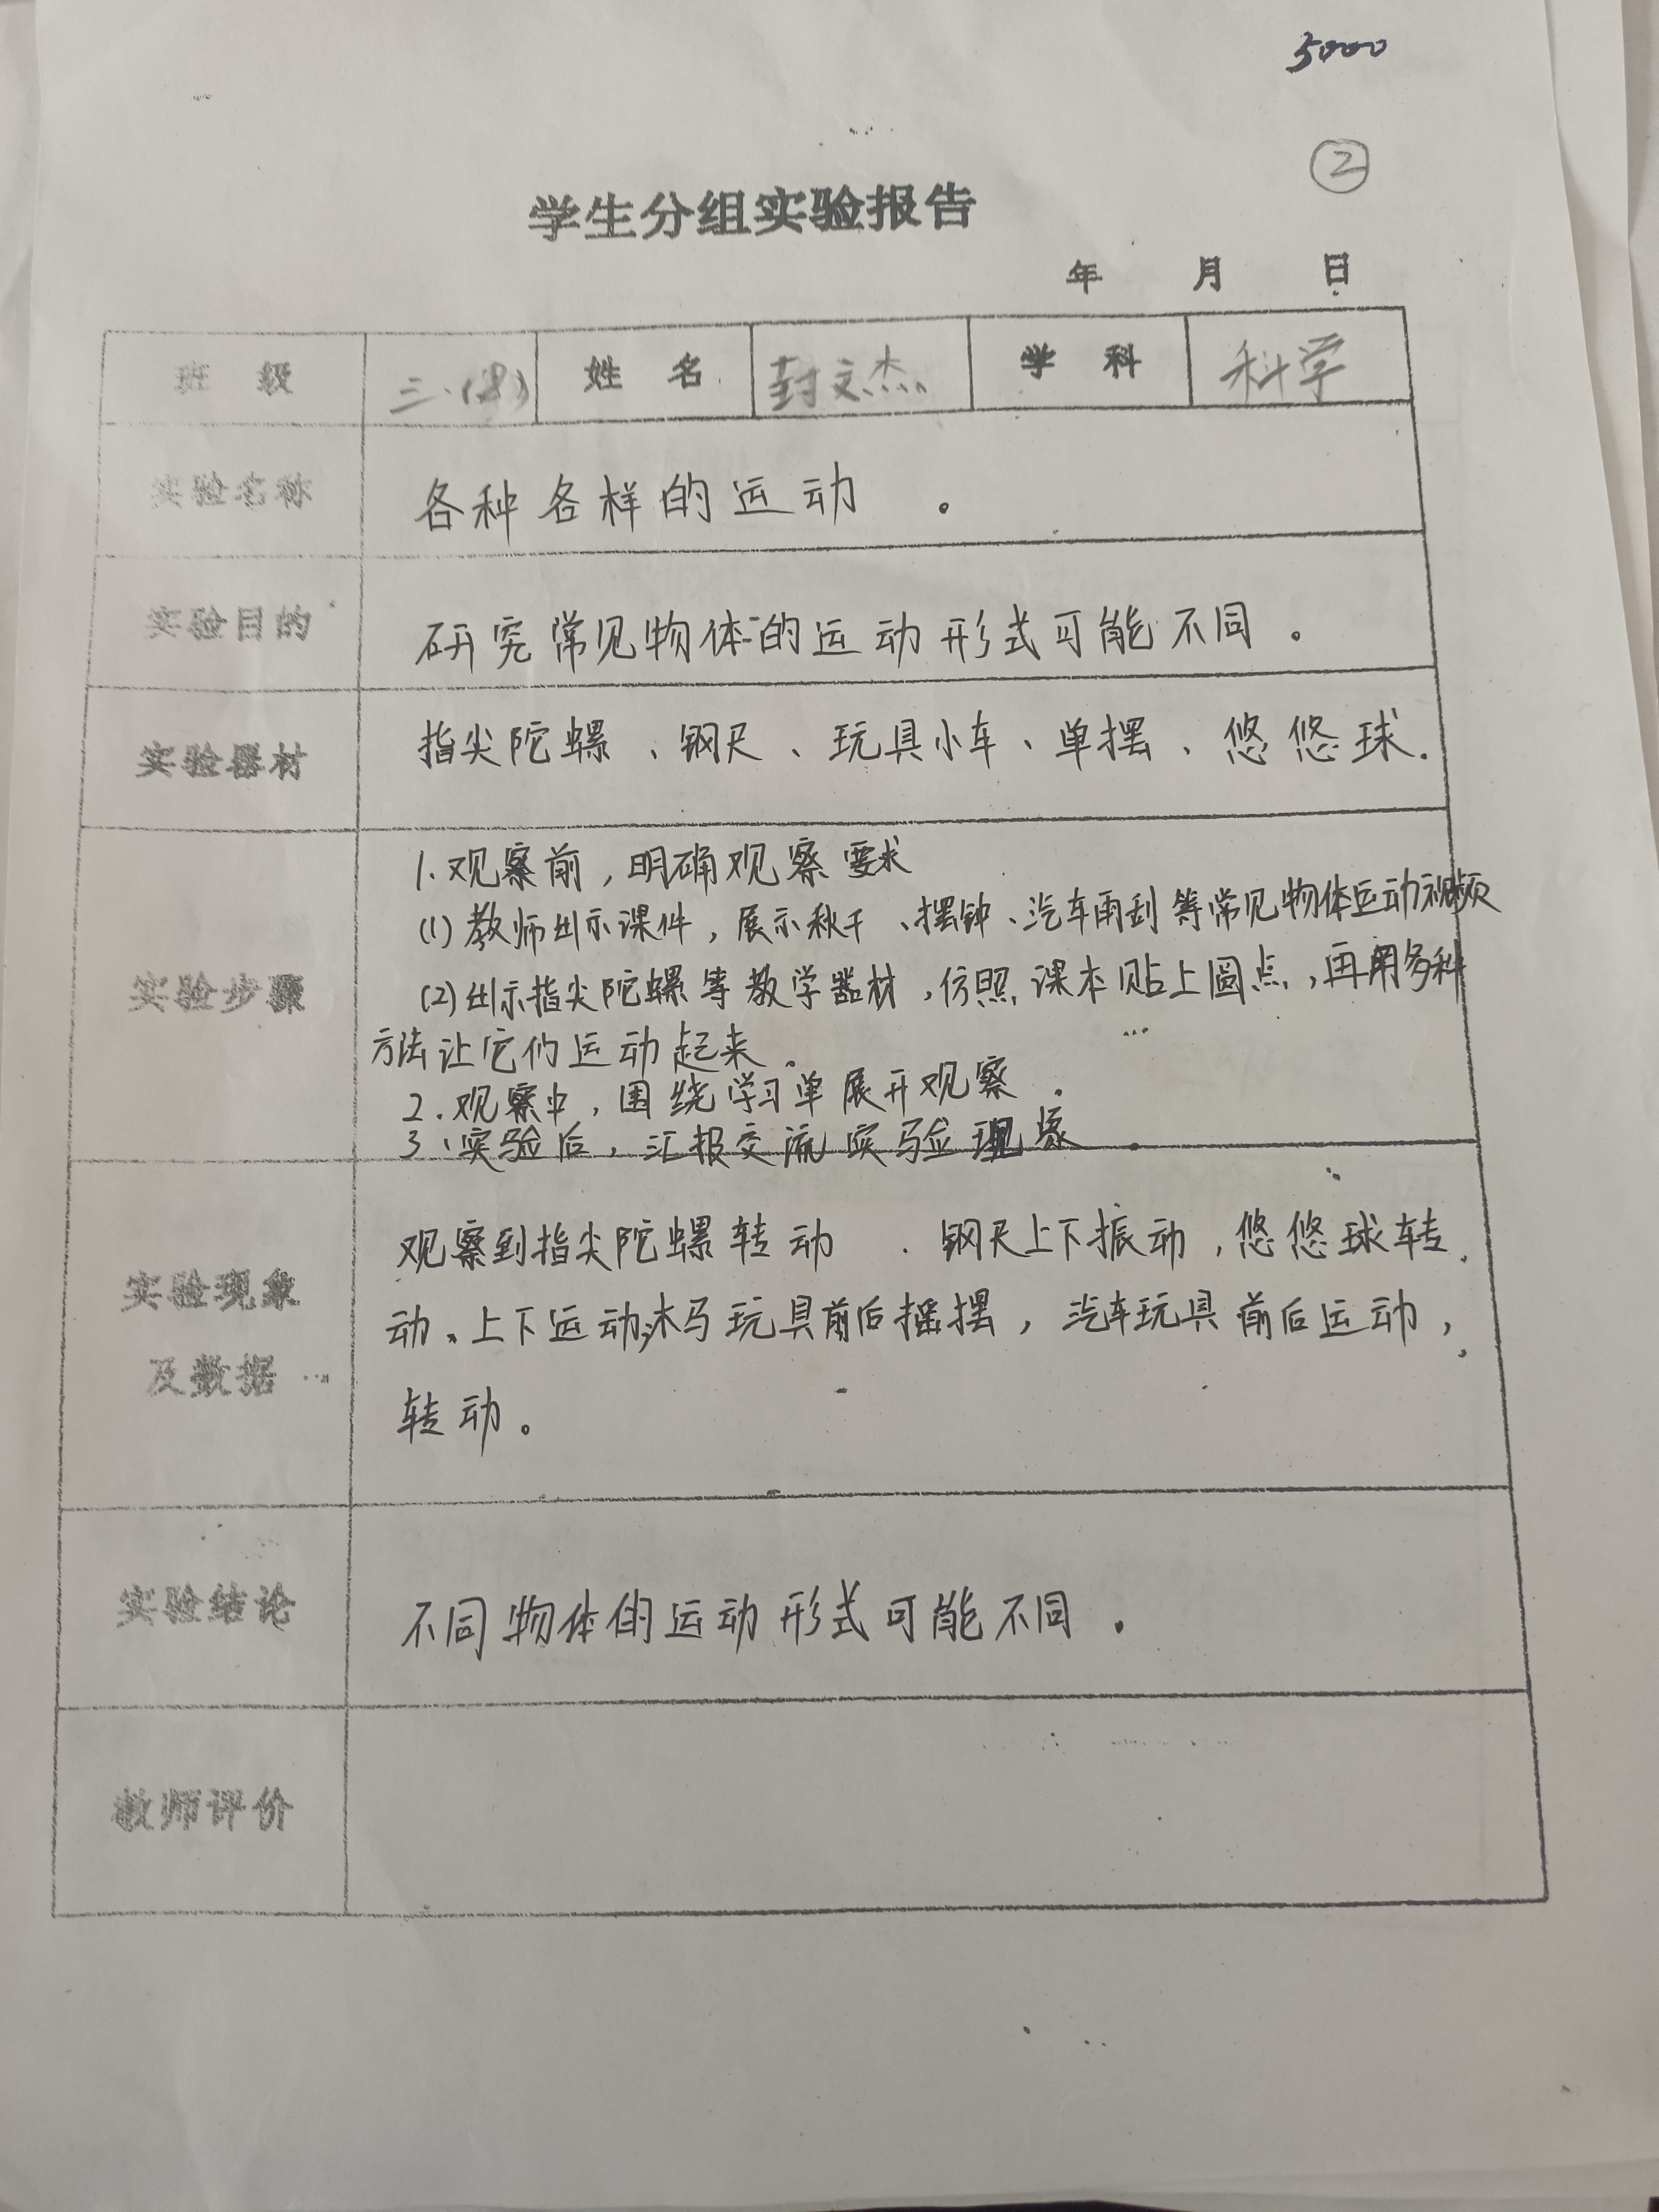 5000
②
学生分组实验报告
年 月 日
班 级 三.(8) 姓 名 封文杰 学 科 科学
实验名称 各种各样的运动 。
实验目的 研究常见物体的运动形式可能不同 。
实验器材 指尖陀螺 、钢尺 、玩具小车 、单摆 、悠悠球.
实验步骤
1.观察前,明确观察要求
(1)教师出示课件,展示秋千、摆钟、汽车雨刮等常见物体运动视频
(2)出示指尖陀螺等教学器材,仿照课本贴上圆点,再用多种
方法让它们运动起来.
2.观察中,围绕学习单展开观察 .
3、实验后,汇报交流实验现象 .
实验现象
及数据
观察到指尖陀螺转动 . 钢尺上下振动,悠悠球转
动、上下运动,木马玩具前后摇摆,汽车玩具前后运动,
转动。
实验结论 不同物体的运动形式可能不同 .
教师评价